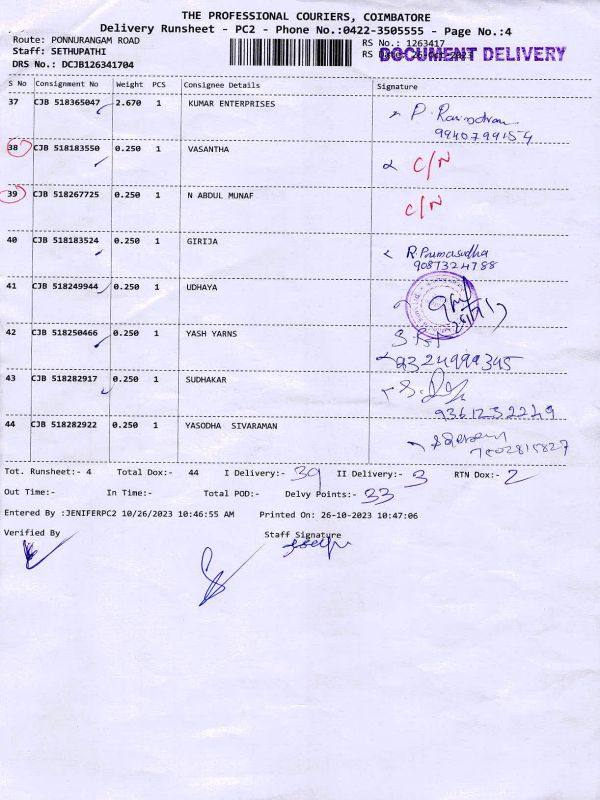 THE PROFESSIONAL COURIERS, COIMBATORE
Delivery Runsheet - PC2 - Phone No.:0422-3505555 - Page No.:4
Route: PONNURANGAM ROAD
RS No.: 1263417
Staff: SETHUPATHI
RS Date: 26-Oct-2023
DOCUMENT DELIVERY
DRS No.: DCJB126341704
S No Consignment No Weight PCS Consignee Details Signature
37 CJB 518365047 2.670 1 KUMAR ENTERPRISES
9940799154
38 CJB 518183550 0.250 1 VASANTHA C/N
39 CJB 518267725 0.250 1 N ABDUL MUNAF C/N
40 CJB 518183524 0.250 1 GIRIJA
9087324788
41 CJB 518249944 0.250 1 UDHAYA
42 CJB 518250466 0.250 1 YASH YARNS
9324999345
43 CJB 518282917 0.250 1 SUDHAKAR
9361232249
44 CJB 518282922 0.250 1 YASODHA SIVARAMAN
7502815827
Tot. Runsheet:- 4 Total Dox:- 44 I Delivery:- 39 II Delivery:- 3 RTN Dox:- 2
Out Time:- In Time:- Total POD:- Delvy Points:- 33
Entered By :JENIFERPC2 10/26/2023 10:46:55 AM Printed On: 26-10-2023 10:47:06
Verified By Staff Signature